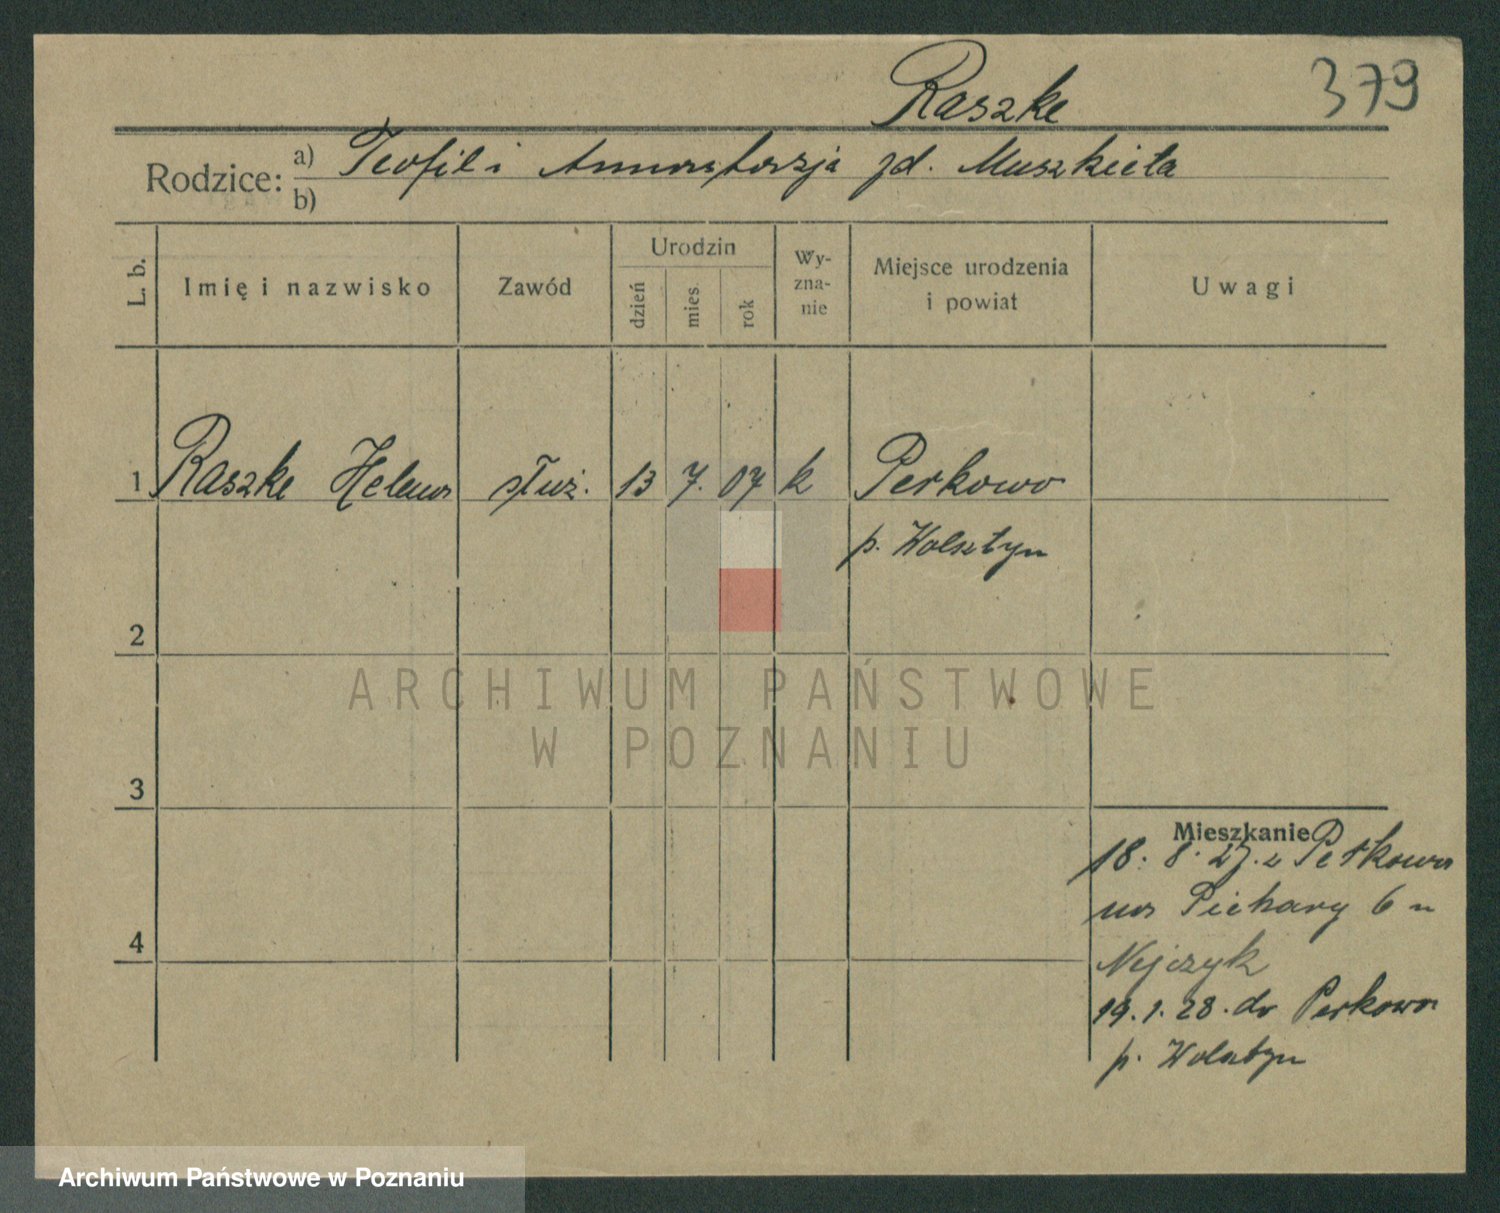 Raszke 379
Rodzice: a) Teofil i Annastazja zd. Muszkieta
b)
L. b. Imię i nazwisko Zawód Urodzin dzień mies. rok Wyznanie Miejsce urodzenia i powiat Uwagi
1 Raszke Helena służ. 13 7. 07 k Perkowo
p. Wolsztyn
2
ARCHIWUM PAŃSTWOWE
W POZNANIU
3
Mieszkanie
18. 8. 27. z Perkowa
na Piekary 6 u
Nejczyk
19. 1. 28. do Perkowo
p. Wolsztyn
4
Archiwum Państwowe w Poznaniu